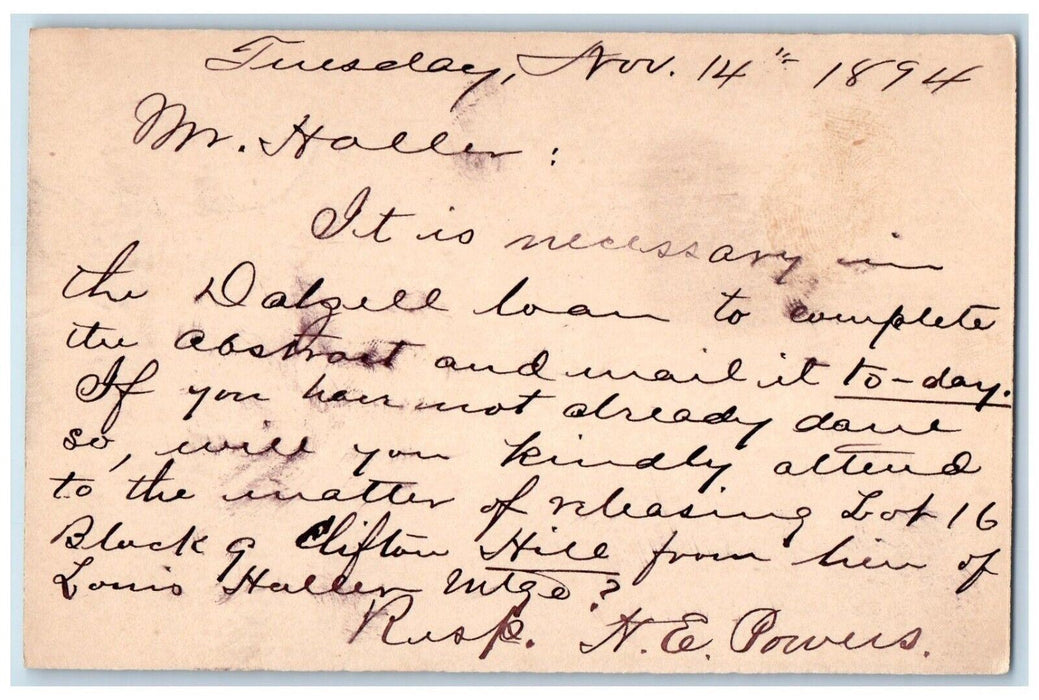 Tuesday, Nov. 14th 1894
Mr. Haller:
It is necessary in
the Dalzell loan to complete
the abstract and mail it to-day.
If you have not already done
so, will you kindly attend
to the matter of releasing Lot 16
Block 9 Clifton Hill from lien of
Louis Haller Mtge?
Resp. H. E. Powers.